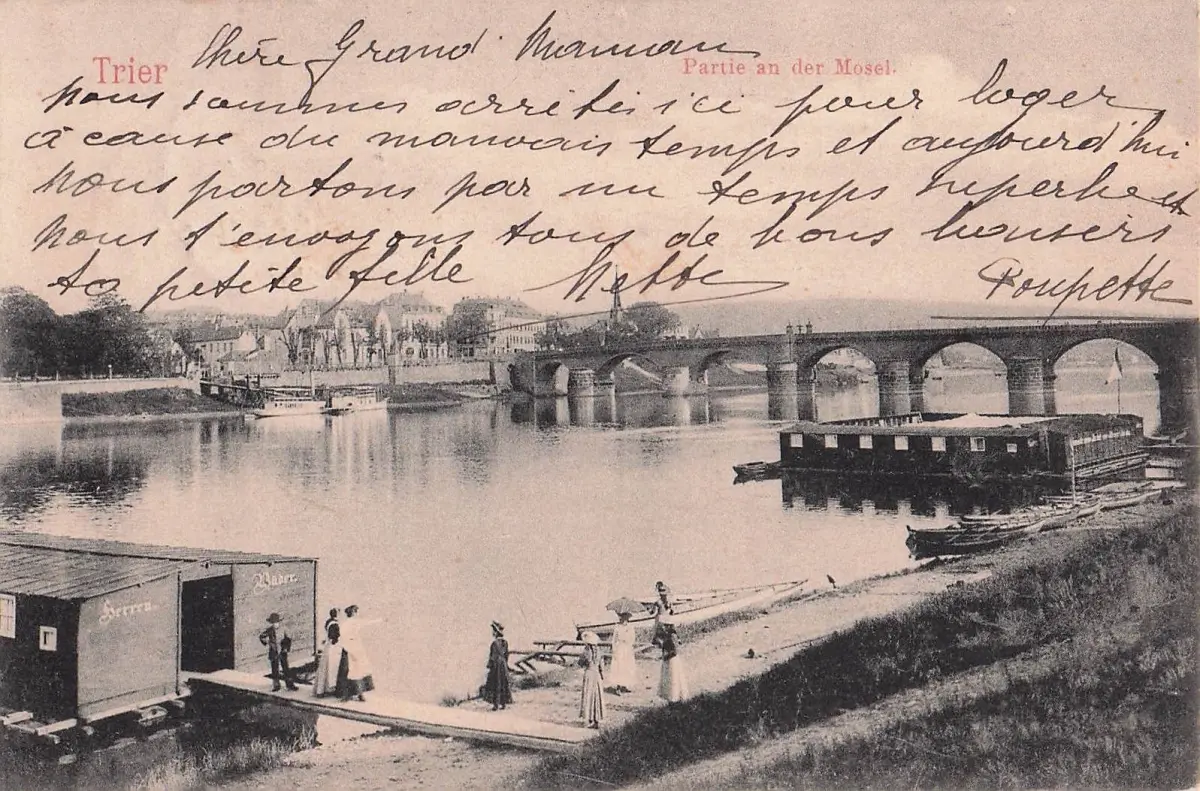 Trier
Partie an der Mosel.
Chère Grand' Maman
nous sommes arrêtés ici pour loger
à cause du mauvais temps et aujourd'hui
nous partons par un temps superbe et
nous t'envoyons tous de bons baisers
ta petite fille Poupette
Herren
Bäder